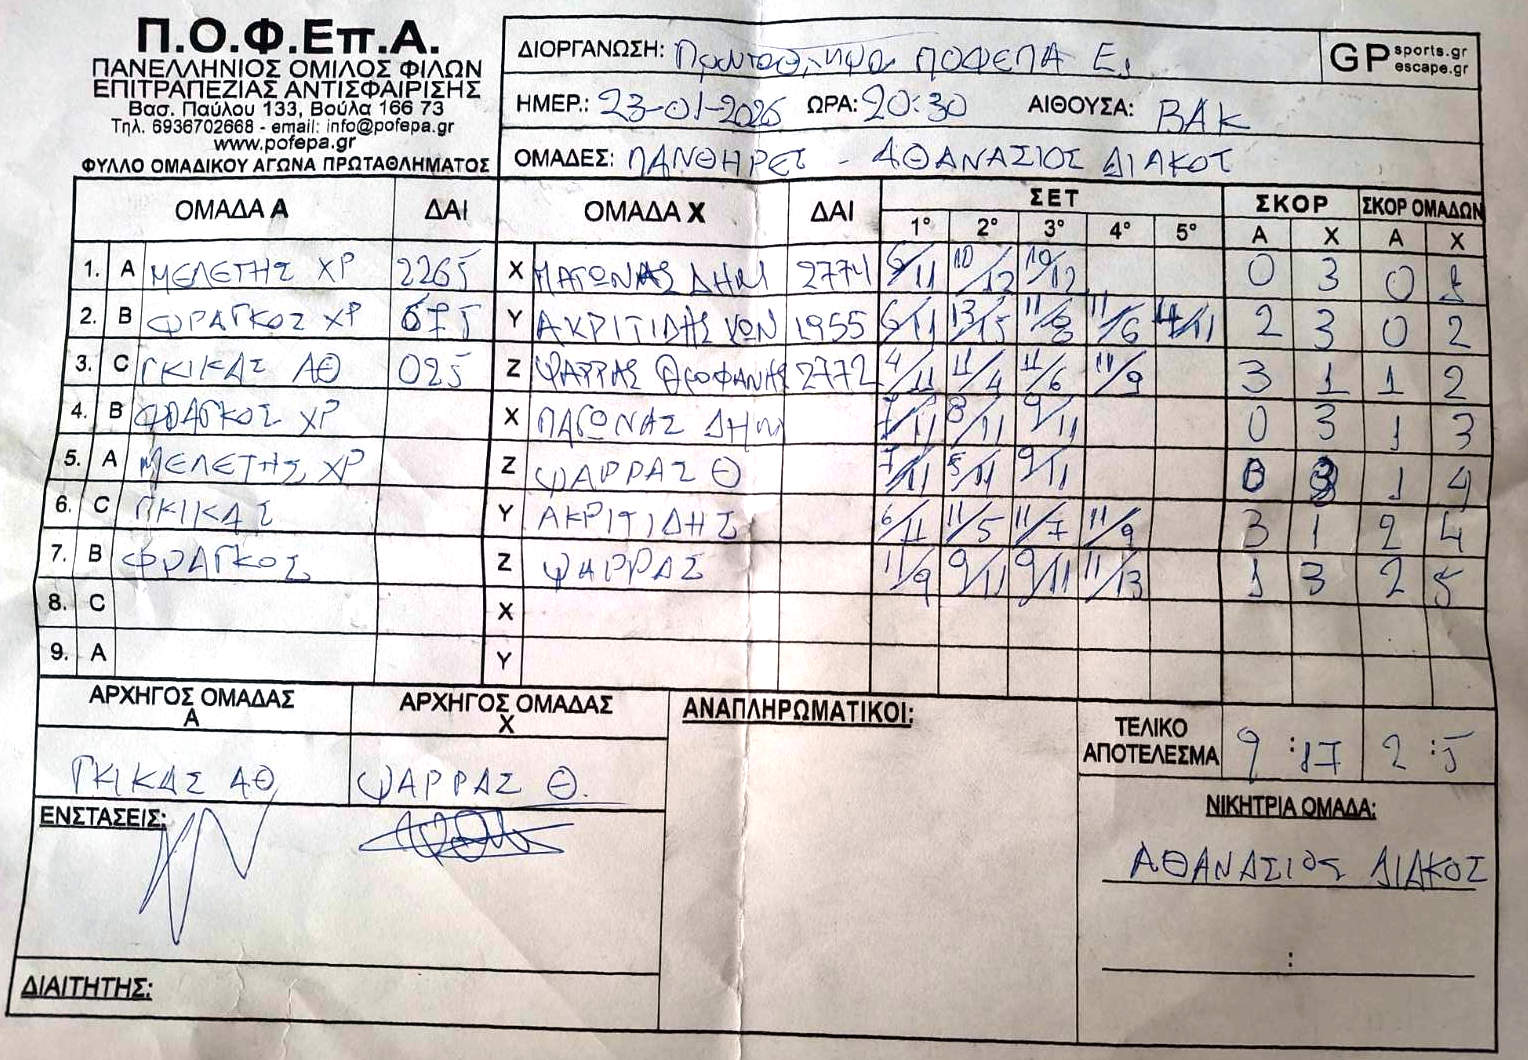 Π.Ο.Φ.Επ.Α.
ΠΑΝΕΛΛΗΝΙΟΣ ΟΜΙΛΟΣ ΦΙΛΩΝ
ΕΠΙΤΡΑΠΕΖΙΑΣ ΑΝΤΙΣΦΑΙΡΙΣΗΣ
Βασ. Παύλου 133, Βούλα 166 73
Τηλ. 6936702668 - email: info@pofepa.gr
www.pofepa.gr
ΦΥΛΛΟ ΟΜΑΔΙΚΟΥ ΑΓΩΝΑ ΠΡΩΤΑΘΛΗΜΑΤΟΣ
ΔΙΟΡΓΑΝΩΣΗ: ΠΟΦΕΠΑ Ε1
GP sports.gr escape.gr
ΗΜΕΡ.: 23-01-2026 ΩΡΑ: 20:30 ΑΙΘΟΥΣΑ: ΒΑΚ
ΟΜΑΔΕΣ: ΠΑΝΘΗΡΕΣ - ΑΘΑΝΑΣΙΟΣ ΔΙΑΚΟΣ
ΟΜΑΔΑ Α ΔΑΙ ΟΜΑΔΑ Χ ΔΑΙ ΣΕΤ ΣΚΟΡ ΣΚΟΡ ΟΜΑΔΩΝ
1° 2° 3° 4° 5° Α Χ Α Χ
1. Α ΜΕΛΕΤΗΣ ΧΡ 2265 Χ ΠΑΓΩΝΑΣ ΔΗΜ 2774 6/11 10/12 10/12 0 3 0 1
2. Β ΦΡΑΓΚΟΣ ΧΡ 675 Υ ΑΚΡΙΤΙΔΗΣ ΚΩΝ 1955 6/11 13/15 11/8 11/6 /11 2 3 0 2
3. C ΓΚΙΚΑΣ ΑΘ 025 Ζ ΨΑΡΡΑΣ ΘΕΟΦΑΝΗΣ 2772 4/11 11/4 11/6 11/9 3 1 1 2
4. Β ΦΡΑΓΚΟΣ ΧΡ Χ ΠΑΓΩΝΑΣ ΔΗΜ 7/11 8/11 9/11 0 3 1 3
5. Α ΜΕΛΕΤΗΣ ΧΡ Ζ ΨΑΡΡΑΣ Θ 7/11 5/11 9/11 0 3 1 4
6. C ΓΚΙΚΑΣ Υ ΑΚΡΙΤΙΔΗΣ 6/11 11/5 11/7 11/9 3 1 2 4
7. Β ΦΡΑΓΚΟΣ Ζ ΨΑΡΡΑΣ 11/9 9/11 9/11 11/13 1 3 2 5
8. C Χ
9. Α Υ
ΑΡΧΗΓΟΣ ΟΜΑΔΑΣ Α ΑΡΧΗΓΟΣ ΟΜΑΔΑΣ Χ ΑΝΑΠΛΗΡΩΜΑΤΙΚΟΙ: ΤΕΛΙΚΟ ΑΠΟΤΕΛΕΣΜΑ 9 : 17 2 : 5
ΓΚΙΚΑΣ ΑΘ ΨΑΡΡΑΣ Θ.
ΕΝΣΤΑΣΕΙΣ: ΝΙΚΗΤΡΙΑ ΟΜΑΔΑ:
ΑΘΑΝΑΣΙΟΣ ΔΙΑΚΟΣ
:
ΔΙΑΙΤΗΤΗΣ: